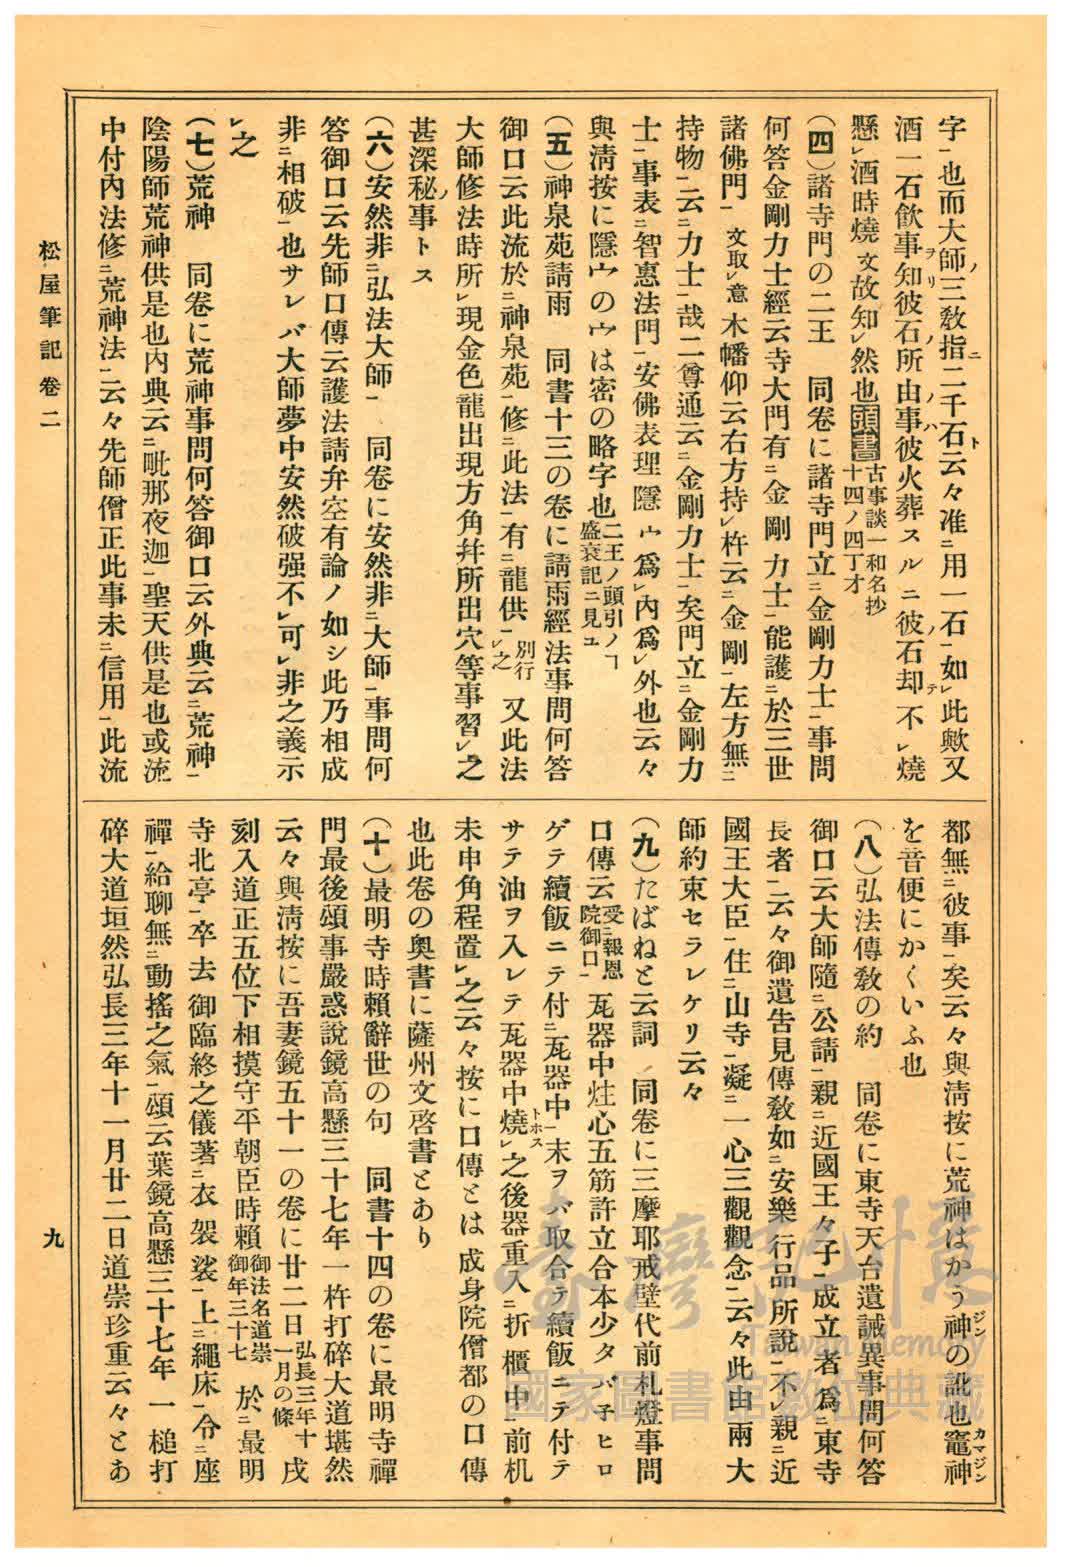 字一也而大師ノ三敎指ニ二千石ト云々准ニ用一石一如レ此歟又
酒一石飮事ヲ知リ彼石ノ所由ノ事ハ彼火葬スルニ彼石ノ却テ不レ燒
懸レ酒時燒文故知レ然也頭書古事談一和名抄十四ノ四丁才
(四)諸寺門の二王 同卷に諸寺門立ニ金剛力士一事問
何答金剛力士經云寺大門有ニ金剛力士一能護ニ於三世
諸佛門一文取レ意木幡仰云右方持レ杵云ニ金剛一左方無ニ
持物一云ニ力士一哉二尊通云ニ金剛力士一矣門立ニ金剛力
士一事表ニ智惠法門一安佛表理隱レ宀爲レ內爲レ外也云々
與淸按に隱宀の宀は密の略字也二王ノ頭引ノヿ盛衰記ニ見ユ
(五)神泉苑請雨 同書十三の卷に請雨經法事問何答
御口云此流於ニ神泉苑一修ニ此法一有ニ龍供一別行レ之又此法
大師修法時所レ現金色龍出現方角幷所出穴等事習レ之
甚深秘ノ事トス
(六)安然非ニ弘法大師一 同卷に安然非ニ大師一事問何
答御口云先師口傳云護法請弁空有論ノ如シ此乃相成
非ニ相破一也サレバ大師夢中安然破强不レ可レ非之義示
レ之
(七)荒神 同卷に荒神事問何答御口云外典云ニ荒神一
陰陽師荒神供是也內典云ニ毗那夜迦一聖天供是也或流
中付內法修ニ荒神法一云々先師僧正此事未ニ信用一此流
都無ニ彼事一矣云々與淸按に荒神はかう神ジンの訛也竈神カマジン
を音便にかくいふ也
(八)弘法傳敎の約 同卷に東寺天台遺誡異事問何答
御口云大師隨ニ公請一親ニ近國王々子一成立者爲ニ東寺
長者一云々御遺告見傳敎如ニ安樂行品所說一不レ親ニ近
國王大臣一住ニ山寺一凝ニ一心三觀觀念一云々此由兩大
師約束セラレケリ云々
(九)たばねと云詞 同卷に三摩耶戒壁代前札燈事問
口傳云受ニ報恩院御口一瓦器中炷心五筋許立合本少タバ子ヒロ
ゲテ續飯ニテ付ニ瓦器中一末ヲバ取合テ續飯ニテ付テ
サテ油ヲ入レテ瓦器中燒トホスレ之後器重入ニ折櫃中一前机
未申角程置レ之云々按に口傳とは成身院僧都の口傳
也此卷の奧書に薩州文啓書とあり
(十)最明寺時賴辭世の句 同書十四の卷に最明寺禪
門最後頌事嚴惑說鏡高懸三十七年一杵打碎大道堪然
云々與淸按に吾妻鏡五十一の卷に廿二日弘長三年十一月の條戌
刻入道正五位下相摸守平朝臣時賴御法名道崇御年三十七於ニ最明
寺北亭一卒去御臨終之儀著ニ衣袈裟一上ニ繩床一令ニ座
禪一給聊無ニ動搖之氣一頌云葉鏡高懸三十七年一槌打
碎大道垣然弘長三年十一月廿二日道崇珍重云々とあ
松屋筆記卷二
九
臺灣記憶
Taiwan Memory
國家圖書館數位典藏